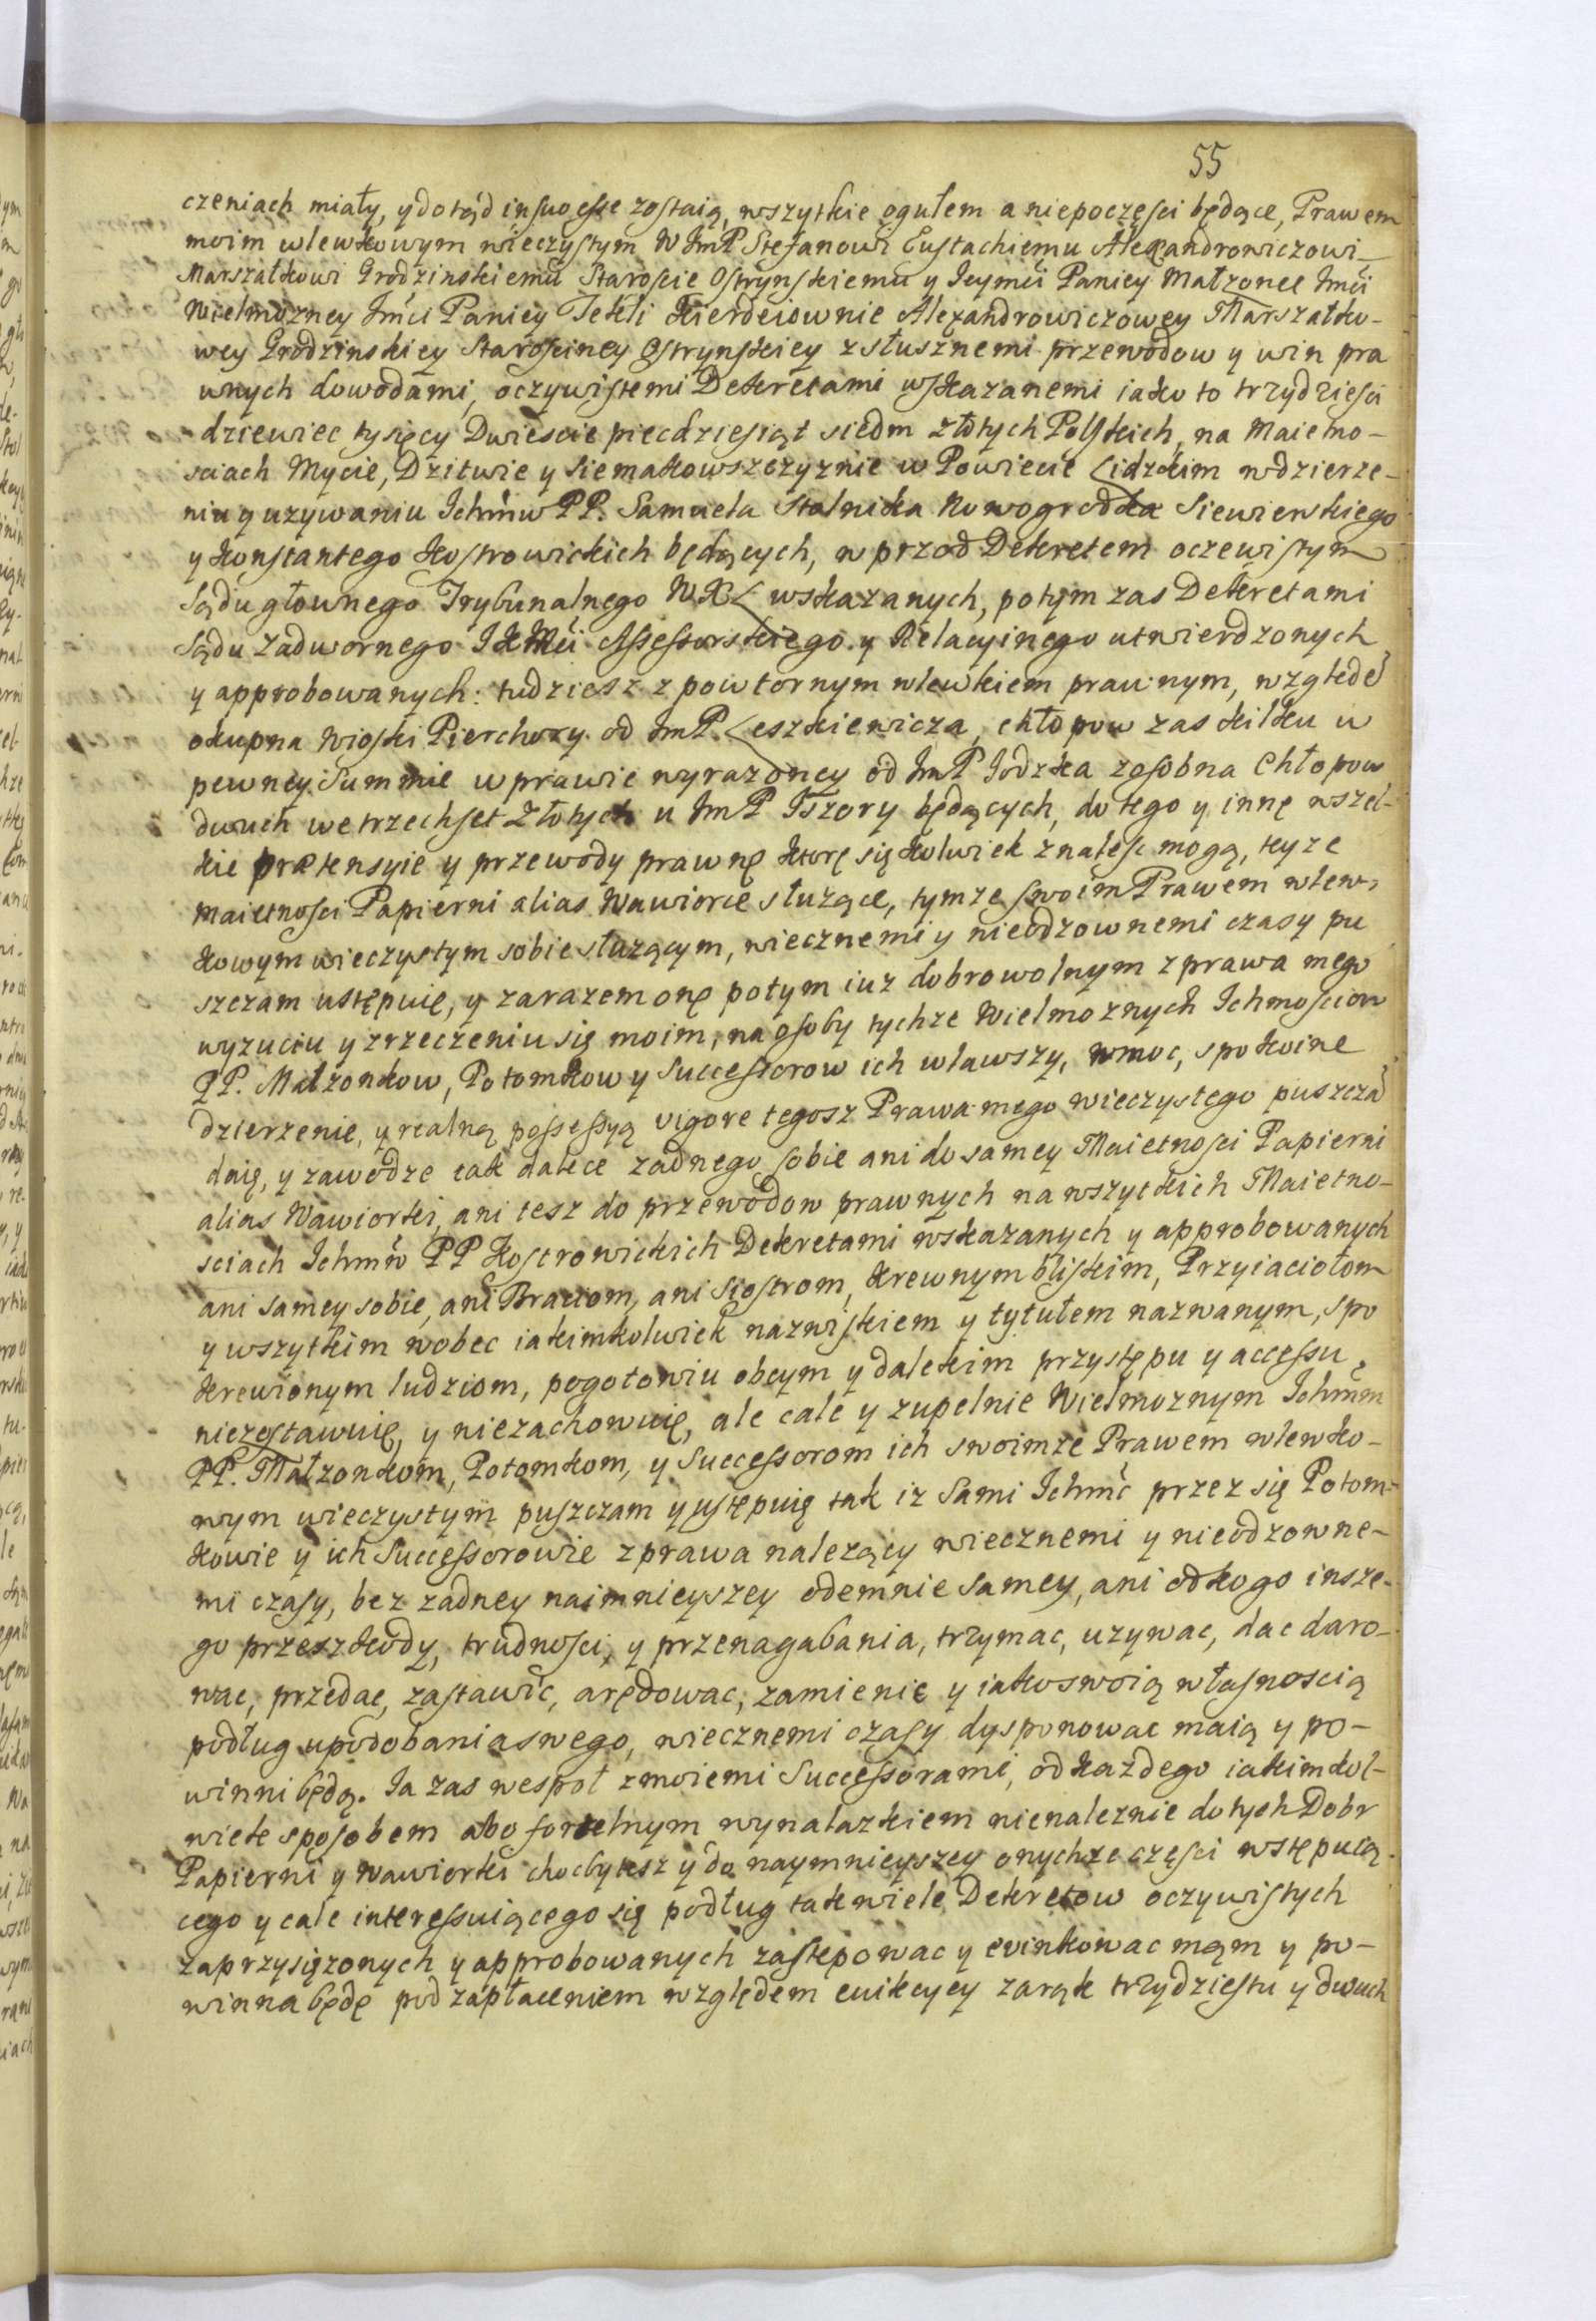 55
czeniach miały, y dotąd in suo esse zostaią, wszytkie ogułem a niepoczęsci będące, Prawem
moim wlewkowym wieczystym W JmP Stefanowi Eustachiemu Alexandrowiczowi
Marszałkowi Grodzinskiemu Staroscie Ostrynskiemu y Jeymći Paniey Małzonce Jmći
Wielmozney Jmći Paniey Tekli Kierdeiownie Alexandrowiczowey Marszałko-
wey Grodzinskiey Starościney Ostrynskiey z słusznemi przewodow y win pra
wnych dowodami, oczywistemi Dekretami wskazanemi iako to trzydziesci
dziewiec tysięcy Dwiescie piecdziesiąt siedm złotych Polskich, na Maietno-
sciach Mycie, Dzitwie y Siemakowszczyznie w Powiecie Lidzkim w dzierze-
niu y uzywaniu Ichmćiw PP. Samuela Stolnika Nowogrodka Siewierskiego
y Konstantego Kostrowickich będących, w przod Dekretem oczewistym
Sądu głownego Trybunalnego W.X.L wskazanych, potym zas Dekretami
Sądu Zadwornego JKMći Assessorskiego y Relacyinego utwierdzonych
y approbowanych: tudziesz z powtornym wlewkiem prawnym, względē
okupna Wioski Pierchory od JmP. Leszkiewicza, chłopow zas kilku w
pewney Summie w prawie wyrazoney od JmP Jodzka zosobna Chłopow
dwuch we trzechset Złotych u JmP Iszory będących, do tego y innę wszel-
kie prætensyie y przewody prawnę ktorę się kolwiek znalesc mogą, teyze
maietnosci Papierni alias Wawiorce słuzące, tymze swoim Prawem wlew-
kowym wieczystym sobie słuzącym, wiecznemi y nieodzownemi czasy pu
szczam ustępuię, y zarazem onę potym iuz dobrowolnym z prawa mego
wyzuciu y zrzeczeniu się moim, na osoby tychze Wielmoznych Ichmosciow
PP. Małzonkow, Potomkow y Successorow ich wlawszy, w moc, spokoine
dzierzenie, y realną possessyą vigore tegosz Prawa mego wieczystego puszczā
daię, y zawodze tak dalece zadnego sobie ani do samey Maietnosci Papierni
alias Wawiorki, ani tesz do przewodow prawnych na wszytkich Maietno-
sciach Ichmćw PP Kostrowickich Dekretami wskazanych y approbowanych
ani samey sobie, ani Braciom, ani Siostrom, Krewnym bliskim, Przyiaciołom
y wszytkim wobec iakimkolwiek nazwiskiem y tytułem nazwanym, spo
krewionym ludziom, pogotowiu obcym y dalekim przystępu y accessu
niezostawuię, y niezachowuię, ale cale y zupelnie Wielmoznym Ichmćm
PP. Małzonkom, Potomkom, y Successorom ich swoimze Prawem wlewko-
wym wieczystym puszczam y ustępuię tak iz Sami Ichmć przez się Potom-
kowie y ich Successorowie z prawa nalezący wiecznemi y nieodzowne-
mi czasy, bez zadney naimnieyszey odemnie samey, ani od kogo insze-
go przeszkody, trudnosci, y przenagabania, trzymac, uzywac, dac daro-
wac, przedac, zastawic, arędowac, zamienic y iako swoią własnoscią
podług upodobania swego, wiecznemi czasy dysponowac maią y po-
winni będą. Ja zas wespoł z moiemi Successorami, od kazdego iakimkol-
wiek sposobem abo fortelnym wynalazkiem nienaleznie do tych Dobr
Papierni y Wawiorki chocby tesz y do naymnieyszey onychze częsci wstępuią-
cego y cale interessuiącego się podług tak wiele Dekretow oczywistych
zaprzysięzonych y approbowanych zastępowac y evinkowac mąm y po-
winna będę pod zapłaceniem względem evikcyey zaręk trzydziestu y dwuch